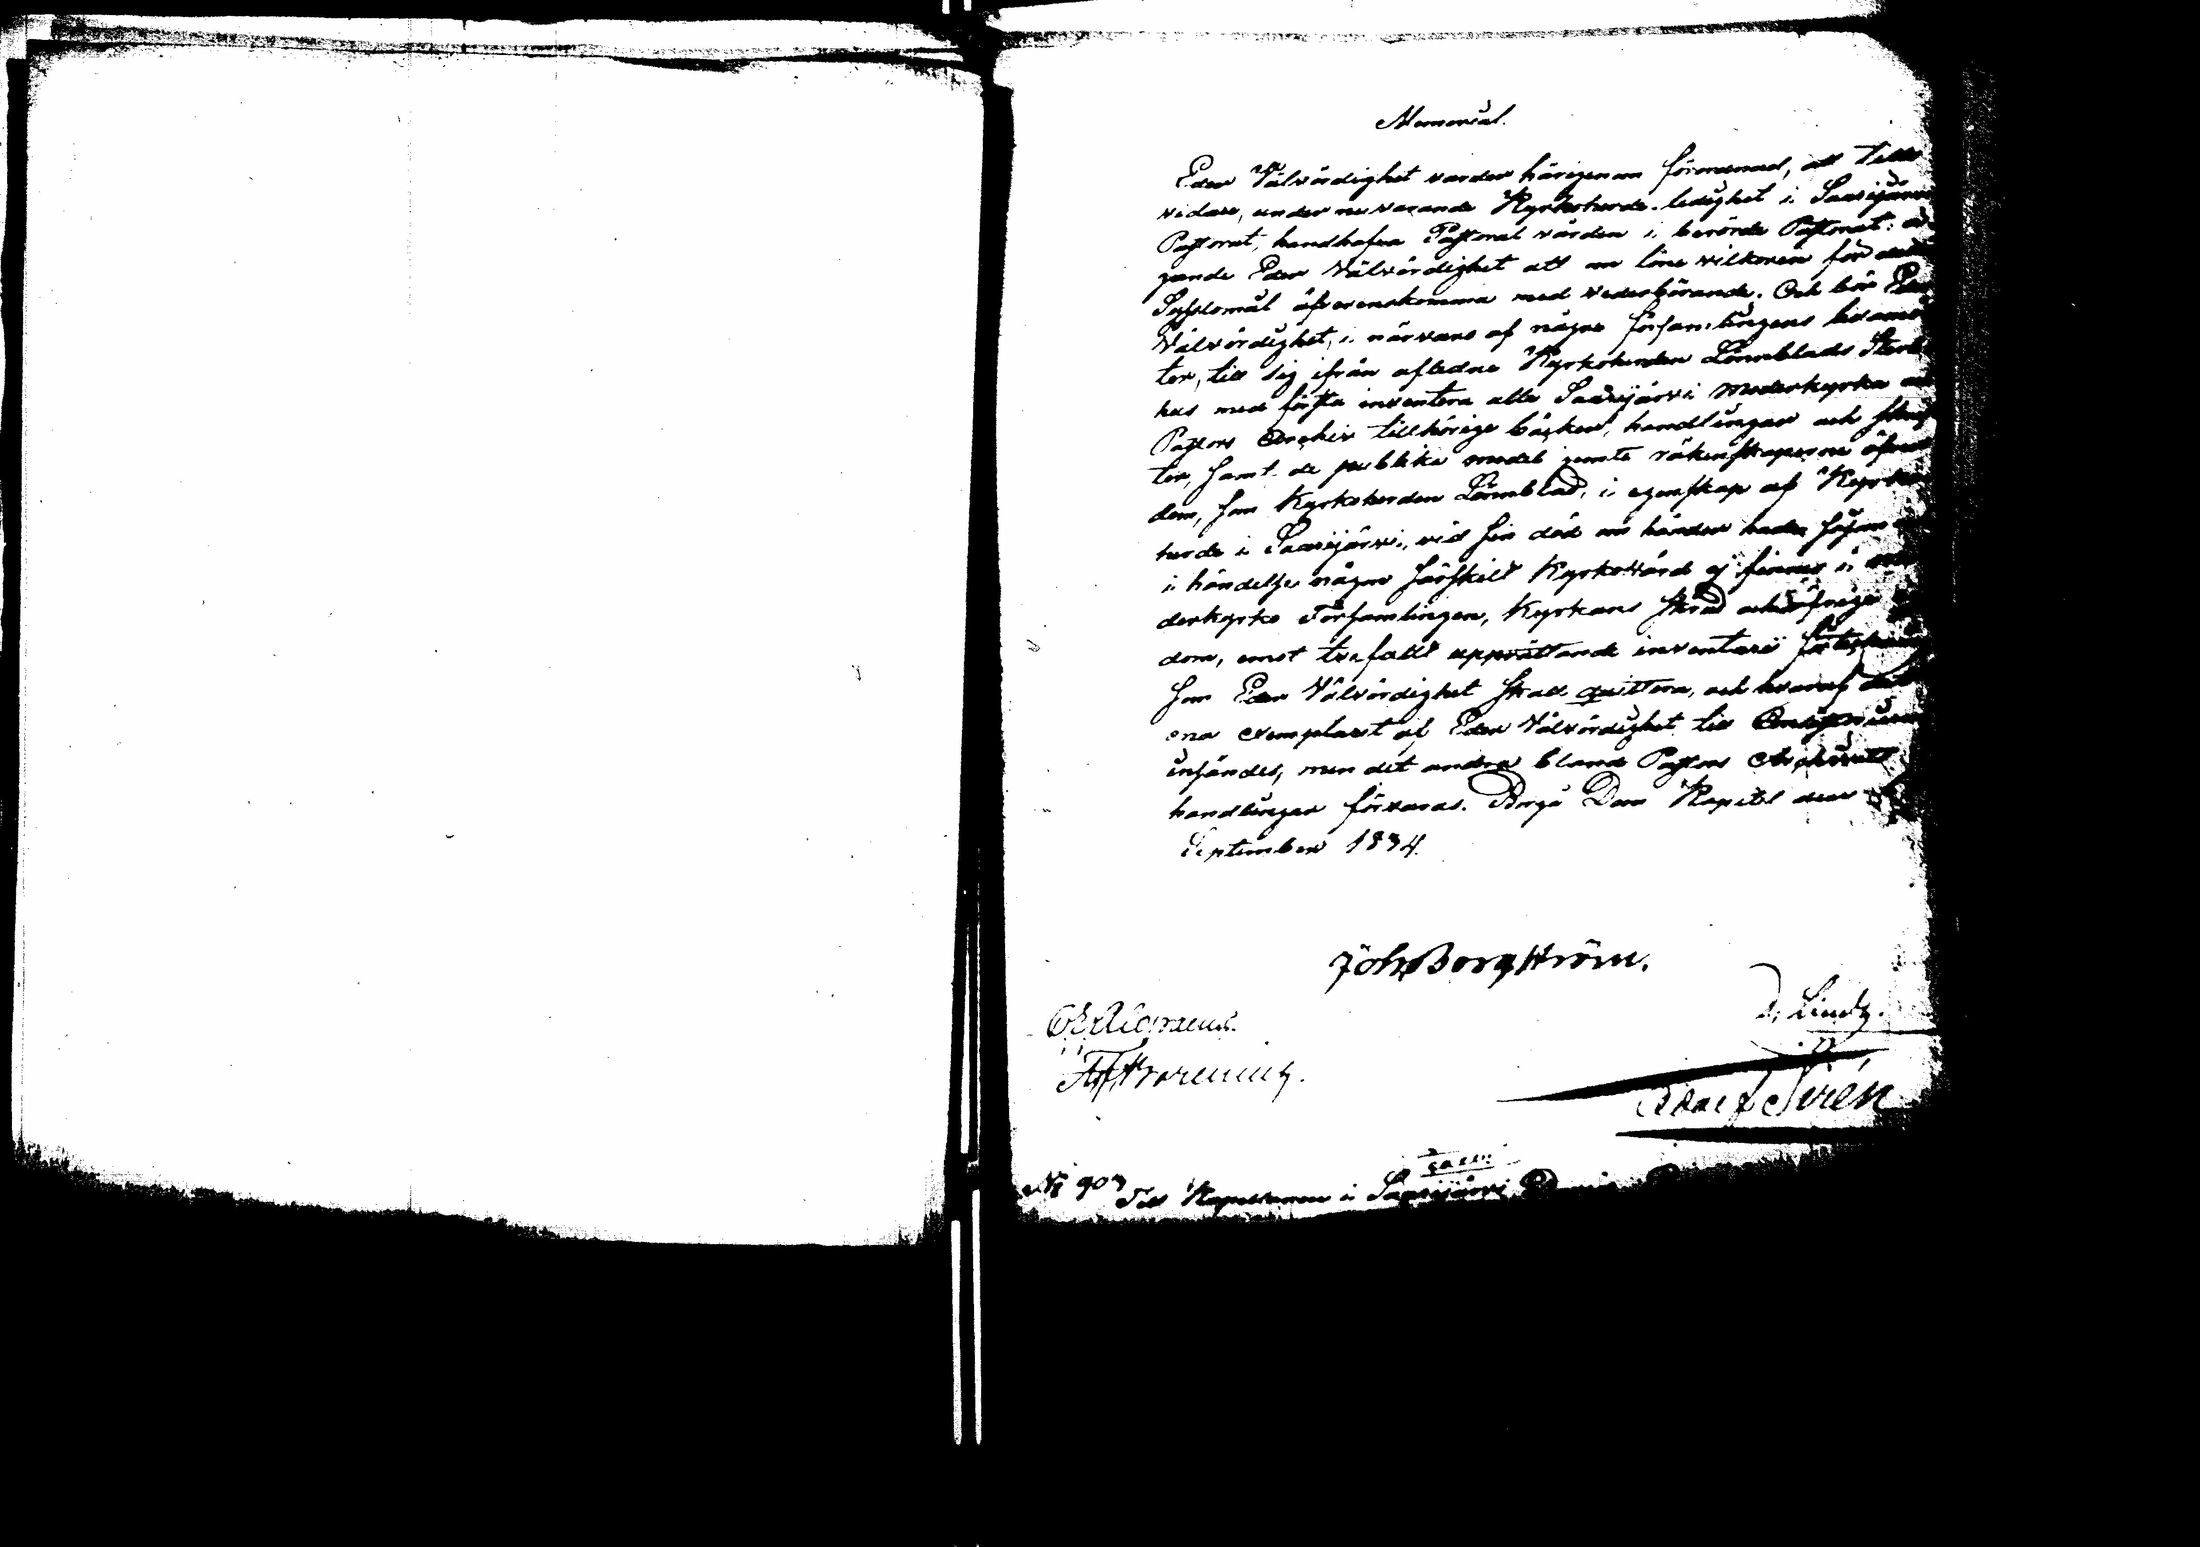 Memorial.
Eder Välvördighet varder härigenom förmanad, att tills
vidare, under nu varande Kyrkoherde-ledighet i Saarijärvi
Pastorat, handhafva Pastoral vården i berörde Pastorat;
gande Eder Välvördighet att om löne vilkoren för
Sysslomål öfverenskomma med vederbörande. Och bör Eder
Välvördighet, i närvaro af några församlingens
ter, till sig ifrån afledne Kyrkoherden Lönnblads Sterb
hus med första inventera alle Saarijärvi Moderkyrka
Pastors Archiv tillhörige böcker, handlingar och
ter, samt de publika medel jemte räkenskaperne öfver
dem, som Kyrkoherden Lönnblad, i egenskap af Kyrko
herde i Saarijärvi, vid sin död om händer hade
i händelse någon särskild Kyrkovärd ej finnes i
derkyrko Församlingen, Kyrkans skrud och öfrige
dom, emot trefaldt upprättande inventarii
som Eder Välvördighet skall quittera, och hvaraf det
ena exemplaret af Eder Välvördighet till
insändes, men det andra bland Pastors Archivets
handlingar förvaras. Borgå Dom Kapitel den
September 1834.
Joh. Borgström.
D. Lindh.
Adolf Sirén
No 907
Till Kapellanen i Saarijärvi